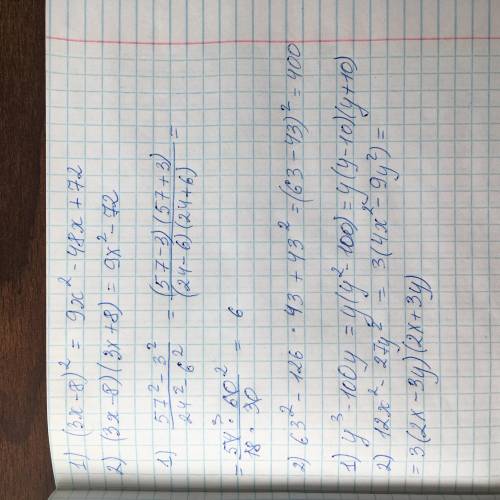 1) (3x-8)² = 9x² - 48x + 72
2) (3x-8)(3x+8) = 9x² - 72
1) (57² - 3²)/(24² - 6²) = ((57-3)(57+3))/((24-6)(24+6)) =
= (54³ · 60²)/(18 · 30) = 6
2) 63² - 126 · 43 + 43² = (63 - 43)² = 400
1) y³ - 100y = y(y² - 100) = y(y-10)(y+10)
2) 12x² - 27y² = 3(4x² - 9y²) =
= 3(2x - 3y)(2x + 3y)